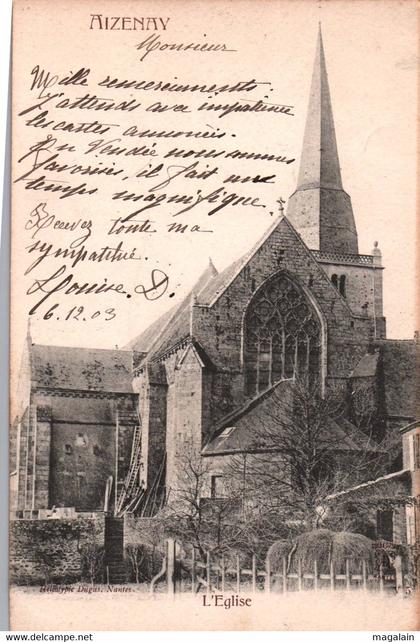 AIZENAY
Monsieur
Mille remerciements.
J'attends avec impatience
les cartes annoncées.
En Vendée nous sommes
favorisés, il fait un
temps magnifique.
Recevez toute ma
sympathie.
Louise. D.
6.12.03
Héliotypie Dugas, Nantes.
L'Eglise